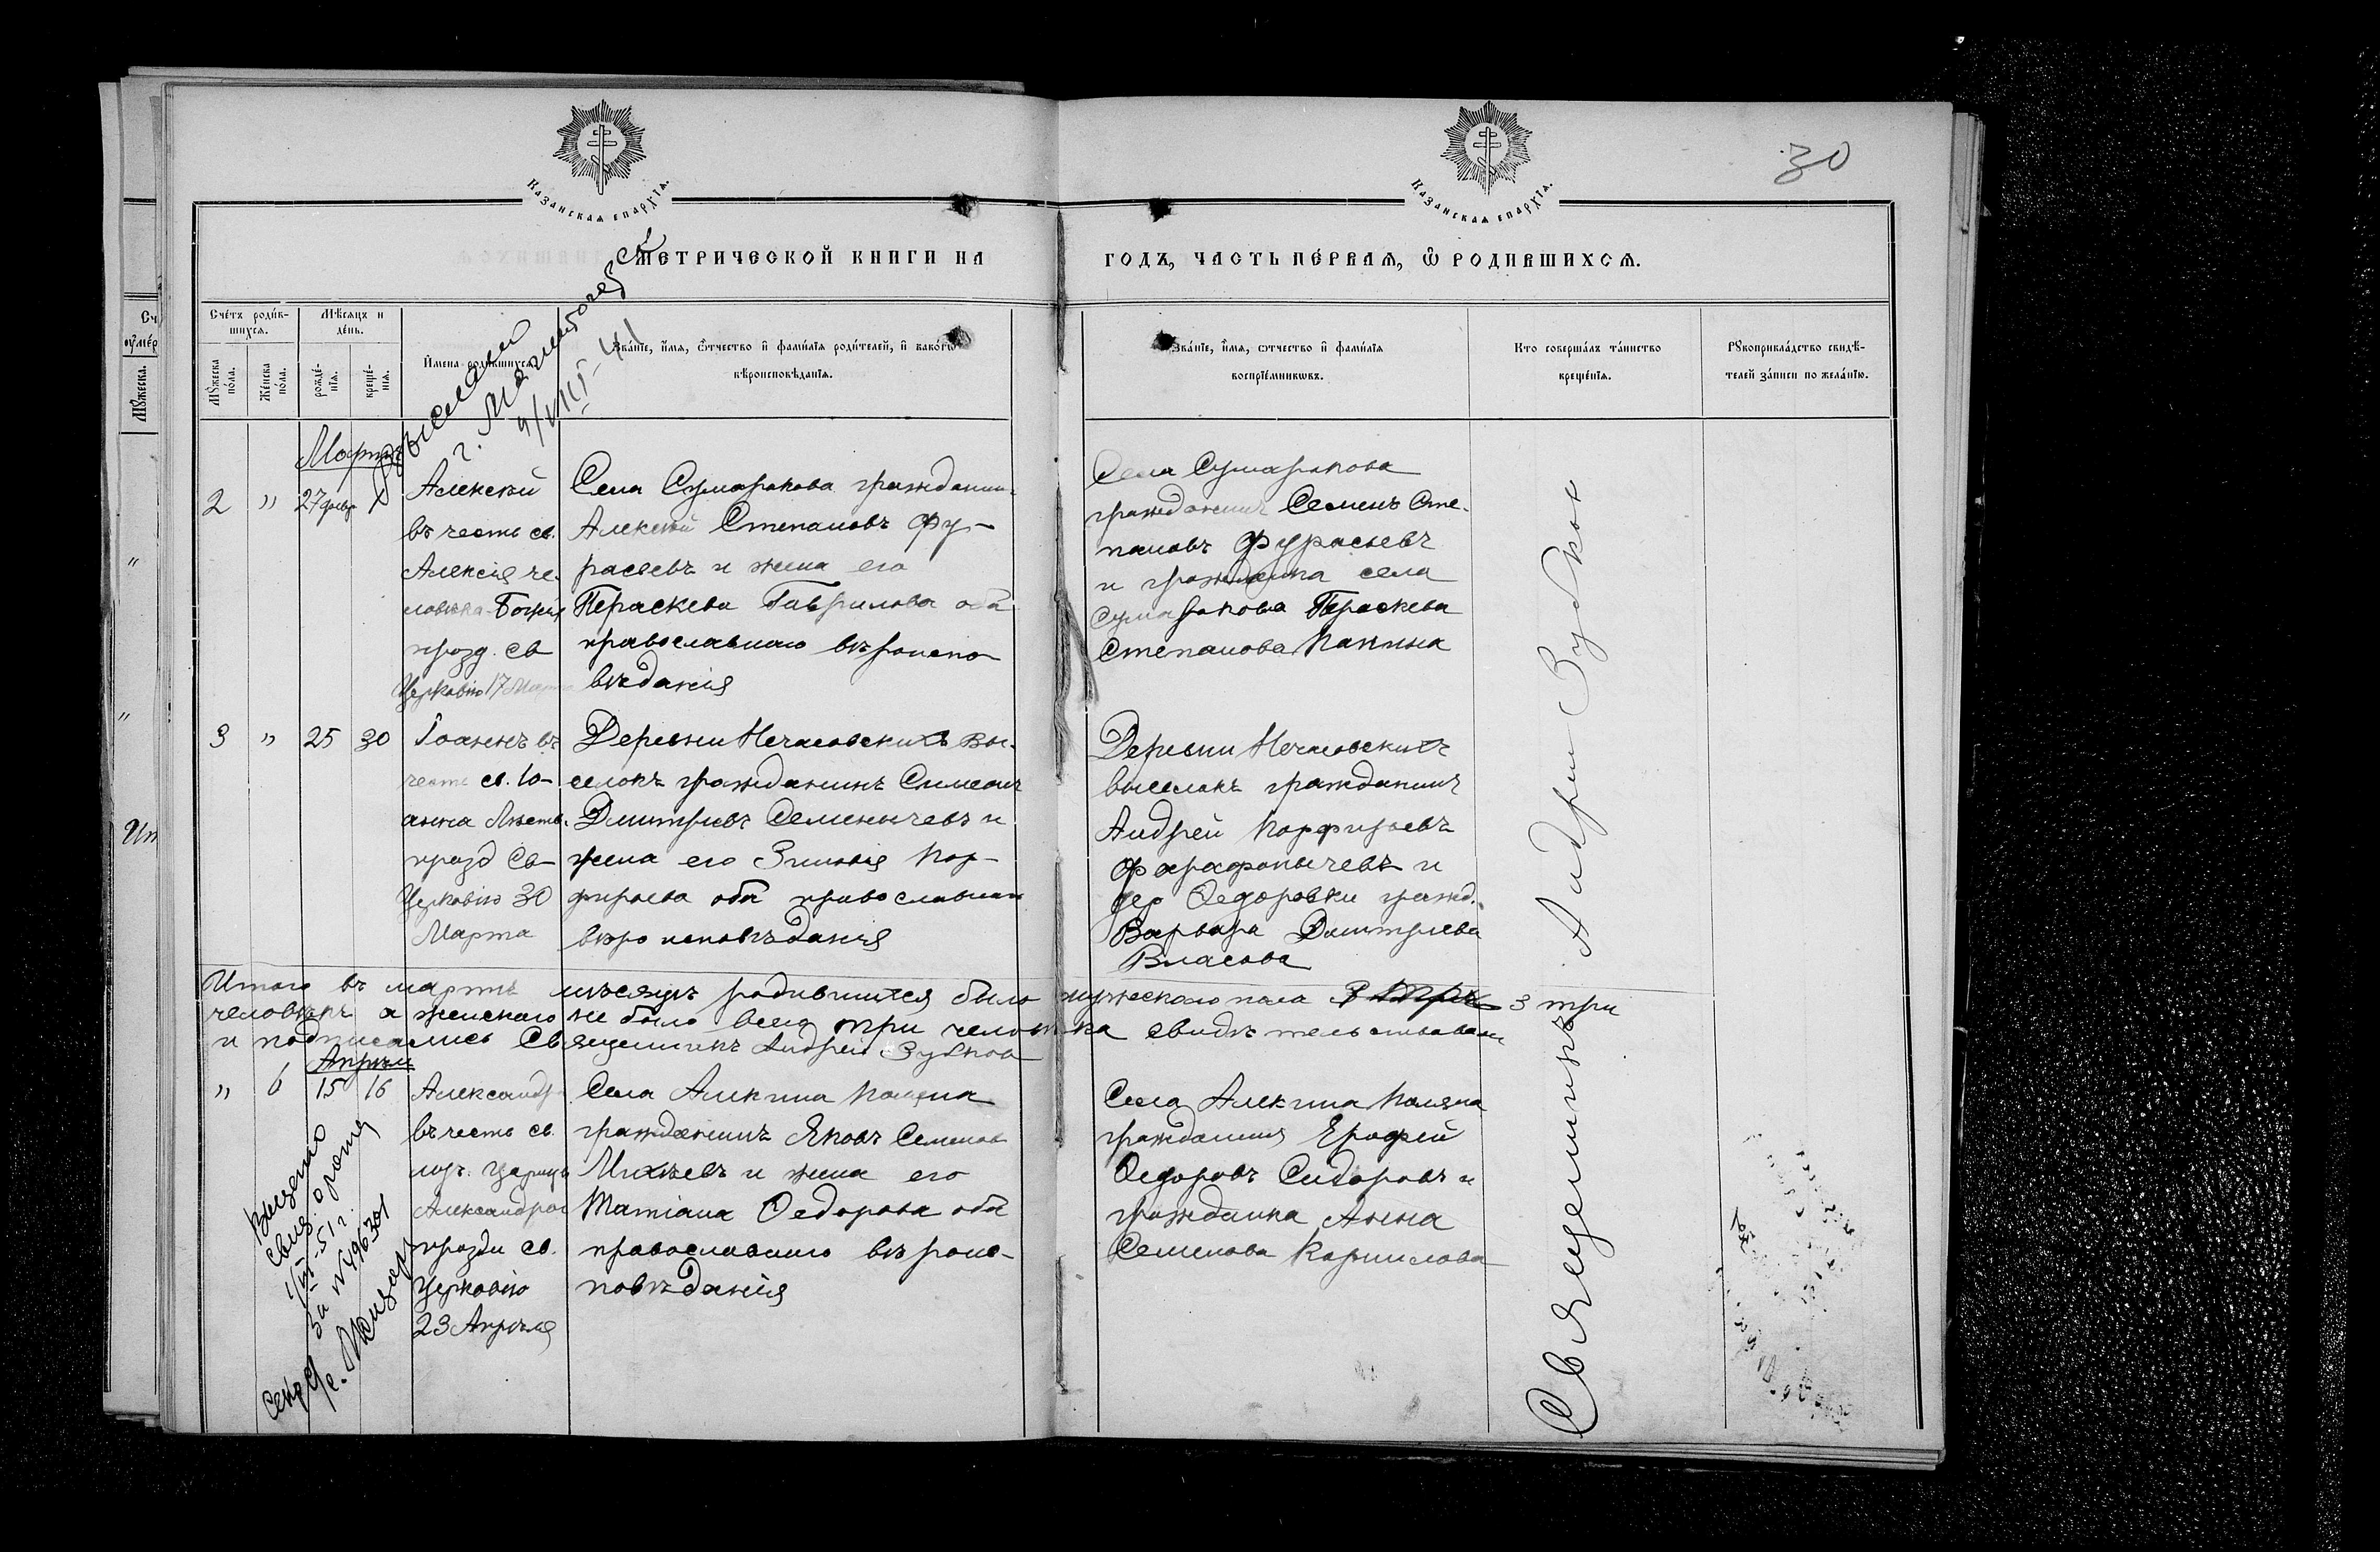 Казанская епархїѧ.
Казанская епархїѧ.
30
МЕТРИЧЕСКОЙ КНИГИ НА
ГОДЪ, ЧАСТЬ ПЕРВАЯ, Ѿ РОДИВШИХСЯ.
Счетъ родив-
шихся.
Мѣсяцъ и
день.
Мужеска
пола.
Женска
пола.
рожде-
нія.
креще-
нія.
Имена родившихся.
Званіе, имя, отчество и фамилія родителей, и какого
вѣроисповѣданія.
Званіе, имя, отчество и фамилія
воспріемниковъ.
Кто совершалъ таинство
крещенія.
Рукоприкладство свидѣ-
телей записи по желанію.
г. Магнитогорск
Мартъ
2 " 27 февр
Алексѣй
въ честь св.
Алексія че-
ловѣка Божія
празд. св
Церковію 17 Марта
Села Сумарокова гражданинъ
Алексѣй Степановъ Фу-
расьевъ и жена его
Параскева Гаврилова оба
православнаго вѣроиспо-
вѣданія
Села Сумарокова
гражданинъ Семенъ Сте-
пановъ Фурасьевъ
и гражданка села
Сумарокова Параскева
Степанова
3 " 25 30
Іоаннъ въ
честь св. Іо-
анна Лѣств.
празд Св
Церковію 30
Марта
Деревни Нечасовскихъ Вы-
селокъ гражданинъ Симеонъ
Дмитріевъ Семенычевъ и
жена его Зиновія Пор-
фирьева оба православнаго
вѣроисповѣданія
Деревни Нечасовскихъ
выселокъ гражданинъ
Андрей Порфирьевъ
Фарафонычевъ и
дер Ѳедоровки гражд.
Варвара Дмитріева
Власова
Итого въ мартѣ мѣсяцѣ родившихся было мужескаго пола 3 три
человѣкъ а женскаго не было всего три человѣка свидѣтельствовали
и подписались Священникъ Андрей Зубков
Апрѣль
" 6 15 16
Александра
въ честь св.
муч. Царицы
Александры
празд св.
Церковію
23 Апрѣля
Села Алекина Поляна
гражданинъ Яковъ Семенов
Михѣевъ и жена его
Татіана Ѳедорова оба
православнаго вѣроис-
повѣданія
Села Алекина Поляна
гражданинъ Ерофей
Ѳедоровъ Сидоровъ и
гражданка Анна
Семенова Корнилова
Священникъ Андрей Зубков